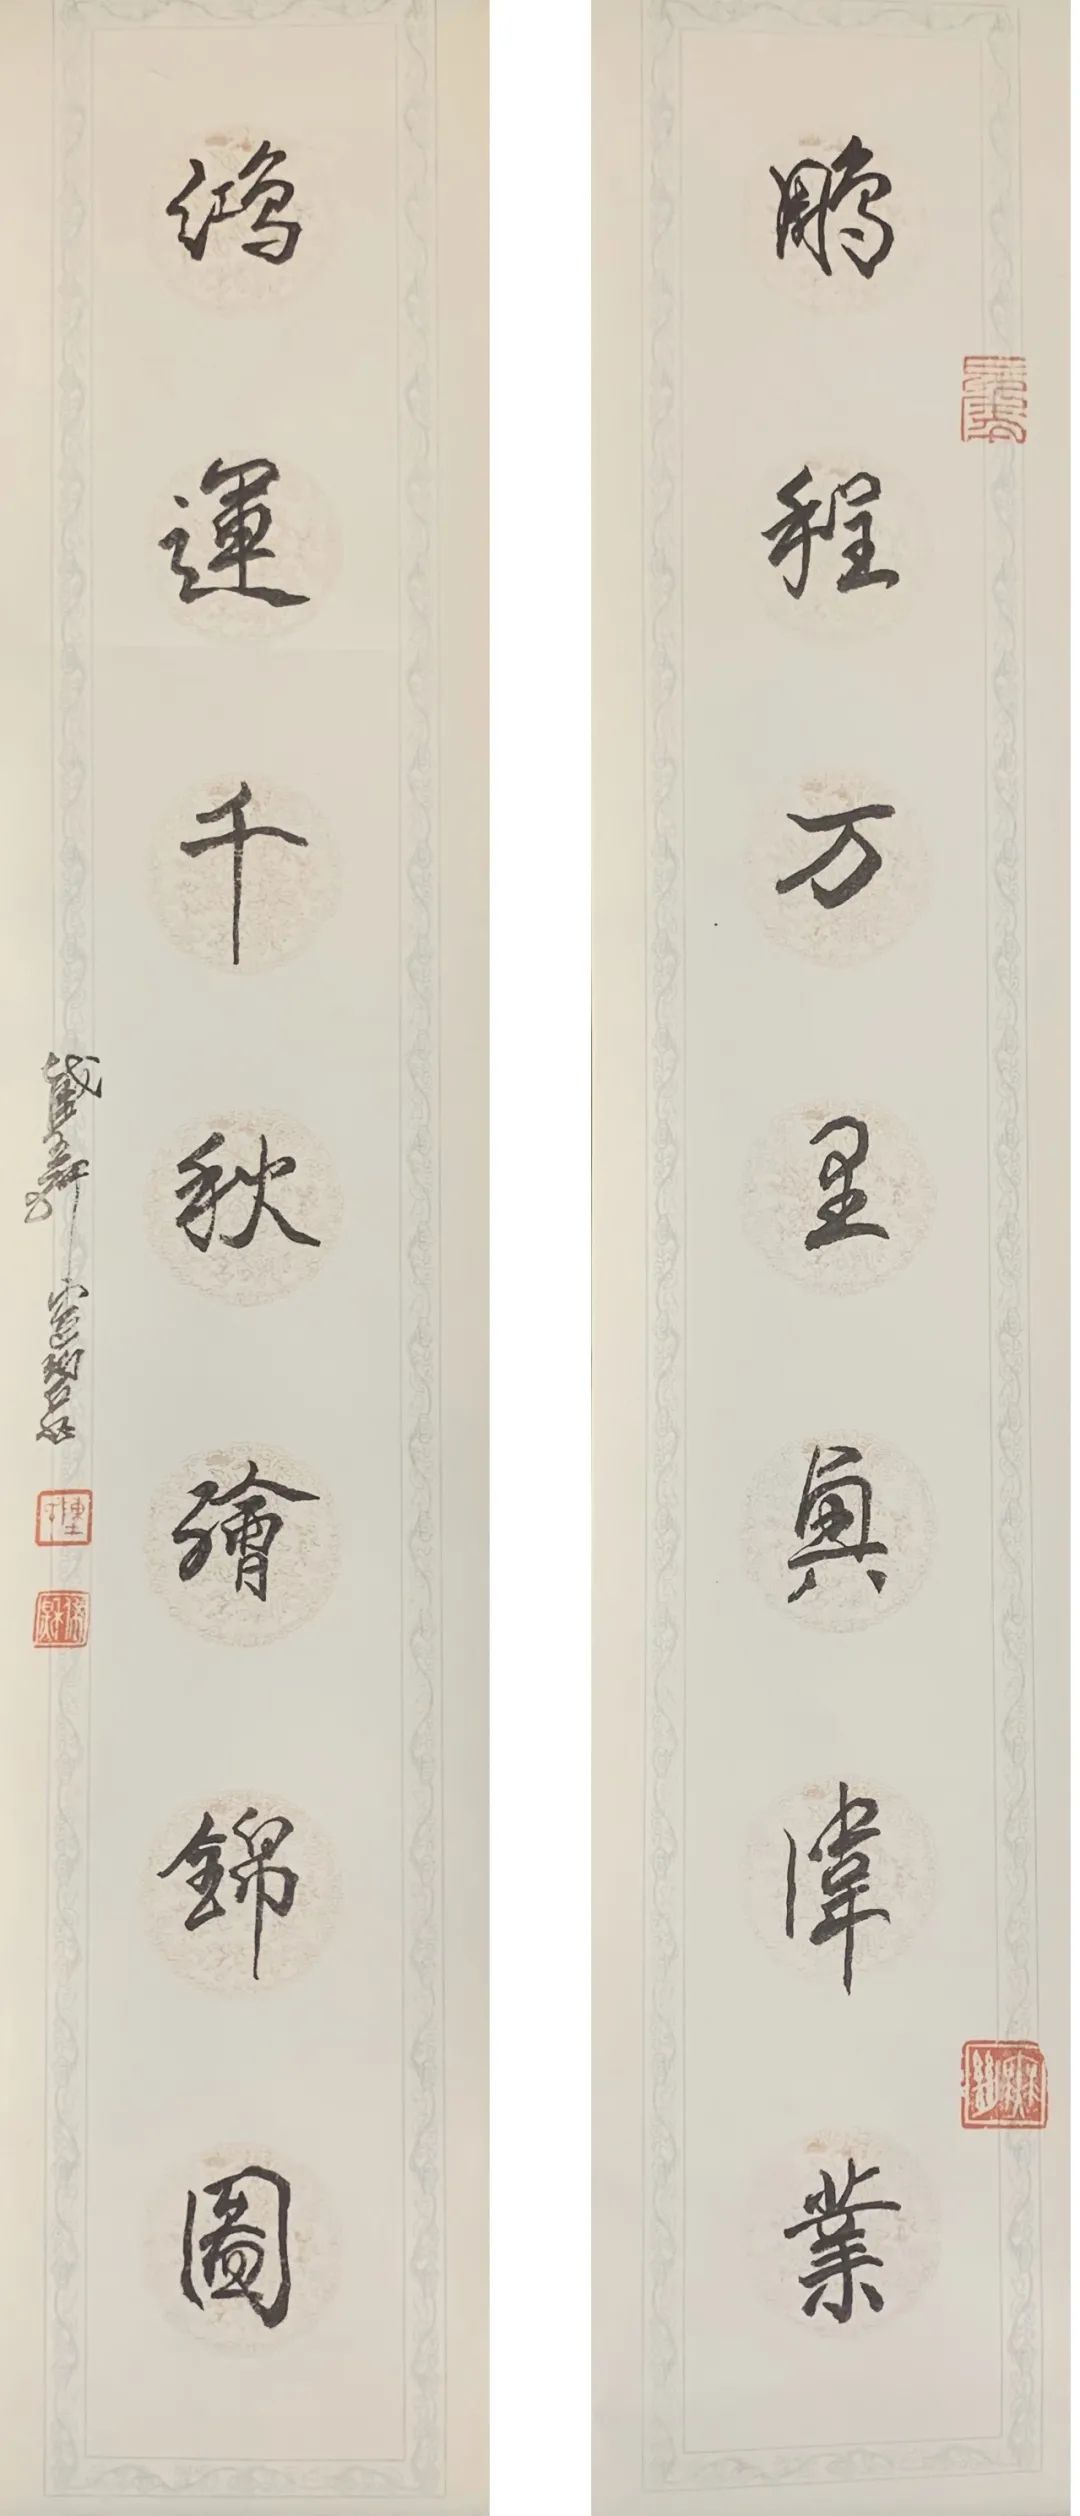 鵬程万里興偉業
鴻運千秋繪錦圖